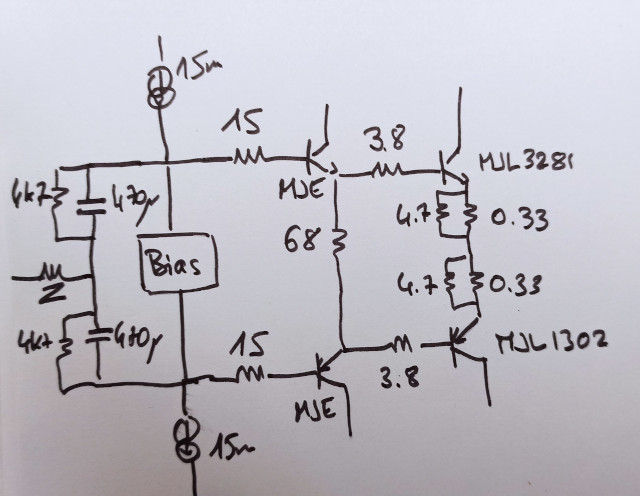 15m
15
3.8
MJL3281
4k7
470µ
MJE
4.7
0.33
68
Bias
Z
4.7
0.33
4k7
470µ
15
MJL1302
3.8
MJE
15m